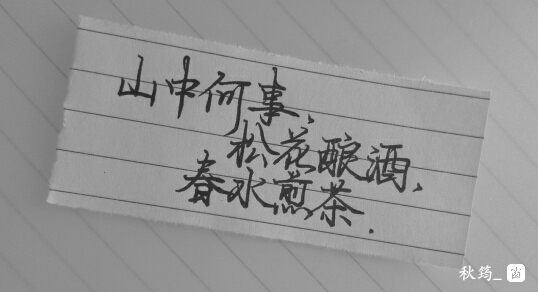 山中何事、
松花酿酒，
春水煎茶．
秋筠_